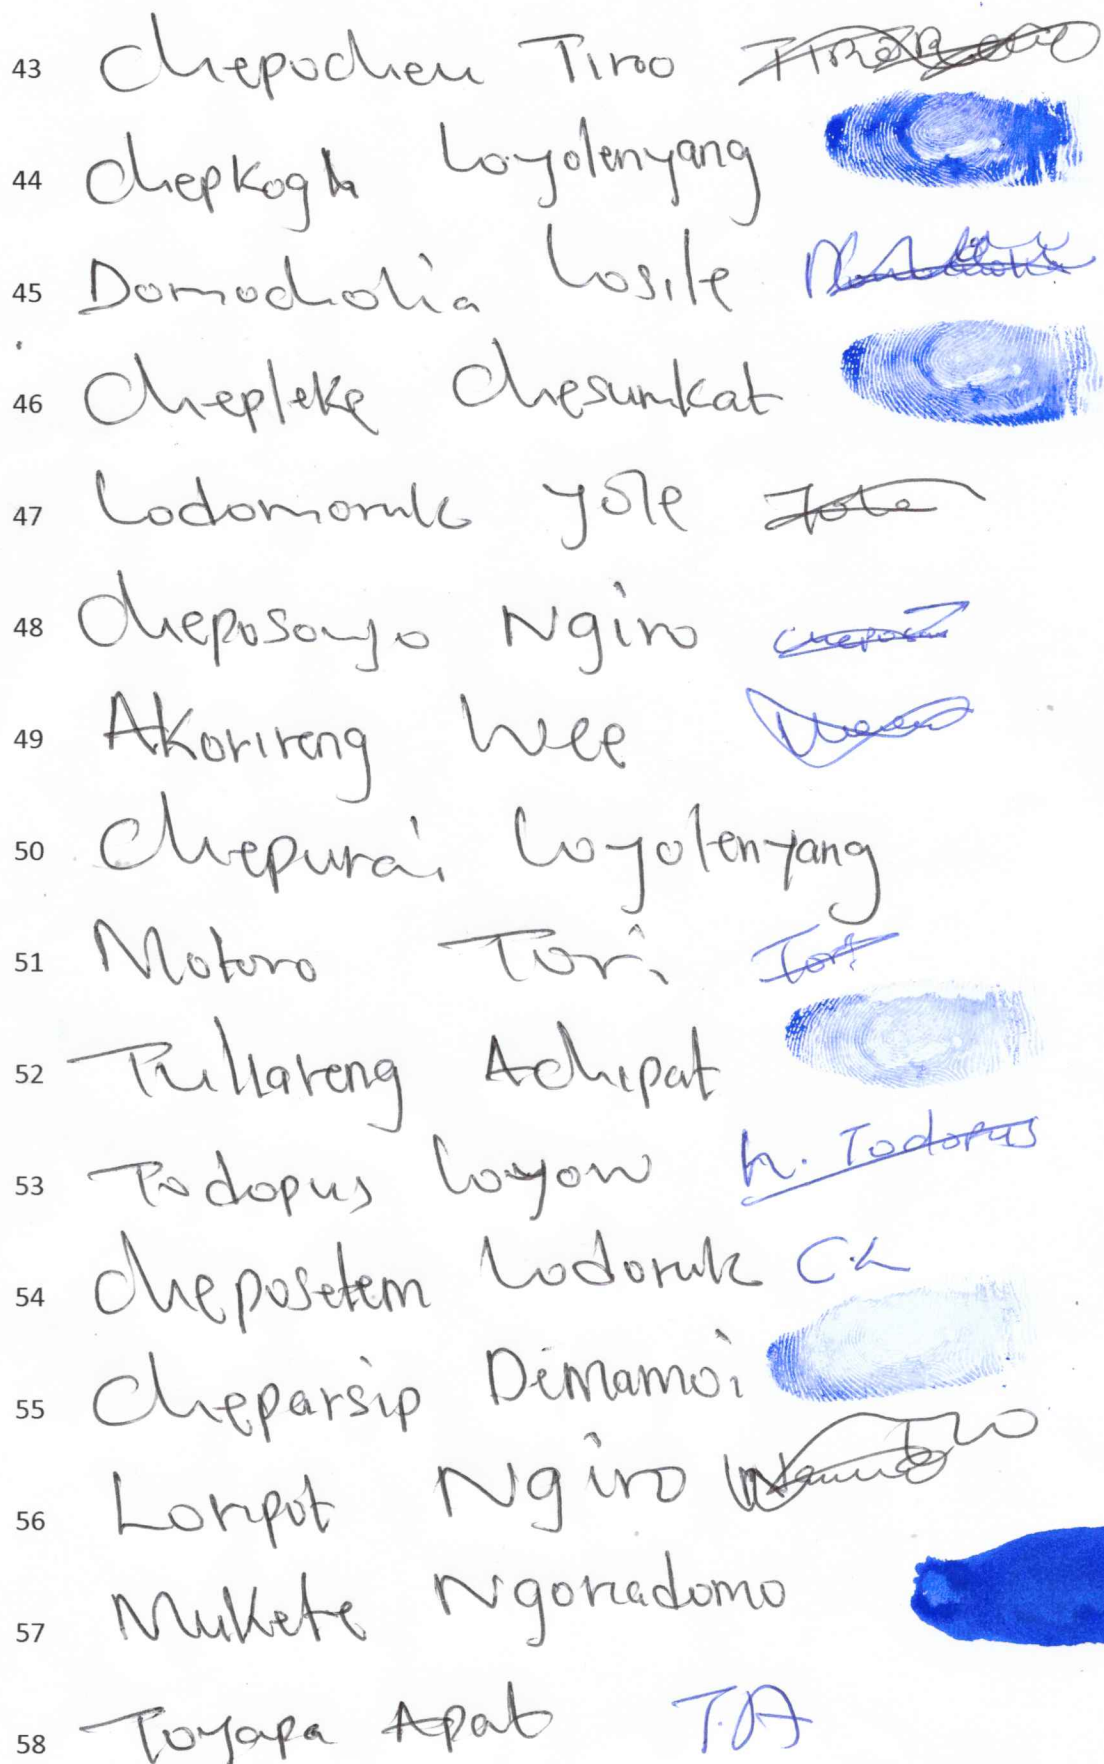 43 Chepocheu Tiroo
44 Chepkogh Loyolenyang
45 Domocholia Losile
46 Chepleke Chesumkat
47 Lodomoruk Yole Yole
48 Cheposoyo Ngiro
49 Akorireng Wee
50 Chepurai Loyolenyang
51 Motoro Tori Tori
52 Tullareng Achipat
53 Todopus Loyow L. Todopus
54 Cheposetem Lodoruk C.L
55 Cheparsip Dimamoi
56 Loripot Ngiro
57 Mukete Ngoriadomo
58 Toyapa Apat T.A